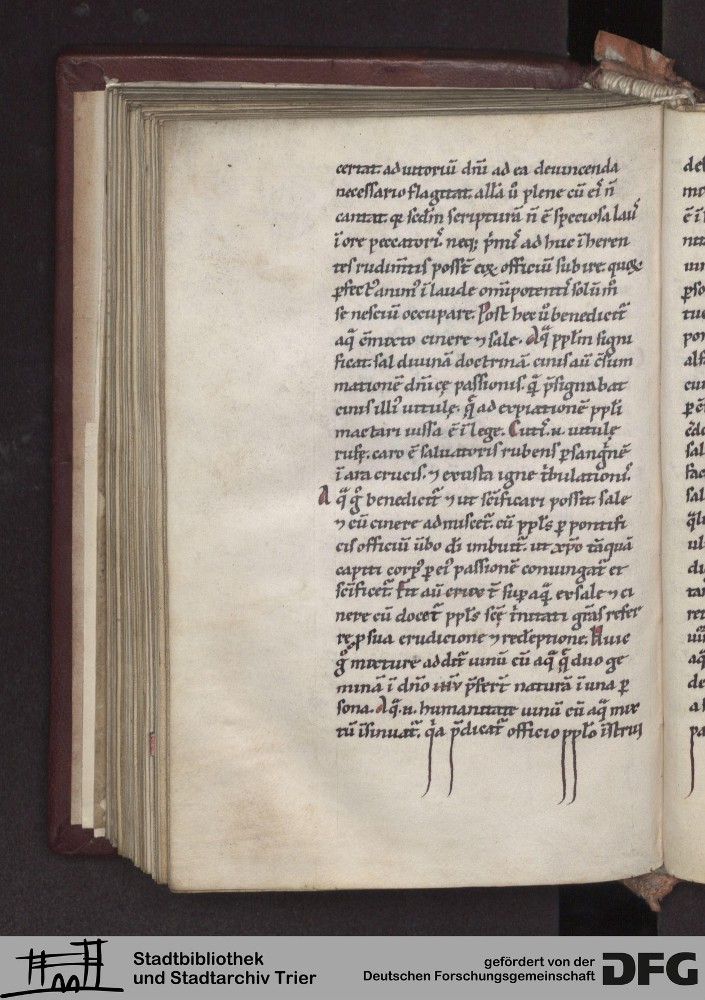 certat. adiutoriū dn̄i ad ea deuincenda
necessario flagitat. all̄a ū plene cū ei n̄
cantat. q̄ scd̄m scripturā n̄ ē speciosa laꝰ
ī ore peccatoriſ. neq; p̄miſ ad huc īheren
tes rudim̄tis possē eiꝰ officiū subire. quoꝝ
ꝑfectꝰ animꝰ ī laude om̄ipotentiſ solūm̄
se nesciū occupare. Post hec ū benedicit̄
aq̄ c̄mixto cinere ⁊ sale. Aq̄ ppl̄m signi
ficat. sal diuinā doctrinā. cinis aū c̄sum
mationē dn̄icę passionis. q̄ p̄signabat
cinis illiꝰ uitulę. q̄ ad expiationē ppl̄i
mactari iussa ē ī lege. Cuiꝰ .n. uitulę
rufę. caro ē saluatoris rubens ꝑ sangnē
ī ara crucis. ⁊ exusta igne t̄bulationiſ.
Aq̄ g̊ benedicit̄ ⁊ ut sc̄ificari possit. sale
⁊ cū cinere admiscet̄. cū ppl̄s ꝑ pontifi
cis officiū ūbo dī imbuit̄. ut xp̄o tāquā
capiti corpꝰ ꝑ eiꝰ passionē coniungat̄ et
sc̄ificet̄. Fit aū crux t̄ sup aq̄. ex sale ⁊ ci
nere cū docet̄ ppl̄s sc̄ę t̄nitati gr̄as refer
re. ꝓ sua erudicione ⁊ redēptione. Huic
g̊ mixture addit̄ uinū cū aq̄ q̄ duo ge
minā ī dn̄o ihū p̄fert̄ naturā ī una ꝑ
sona. Aq̄ .n. humanitate uinū cū aq̄ mix
tū īsinuat̄. q̄a p̄dicat̄ officio ppl̄o īstruiſ
Stadtbibliothek
und Stadtarchiv Trier
gefördert von der
Deutschen Forschungsgemeinschaft
DFG